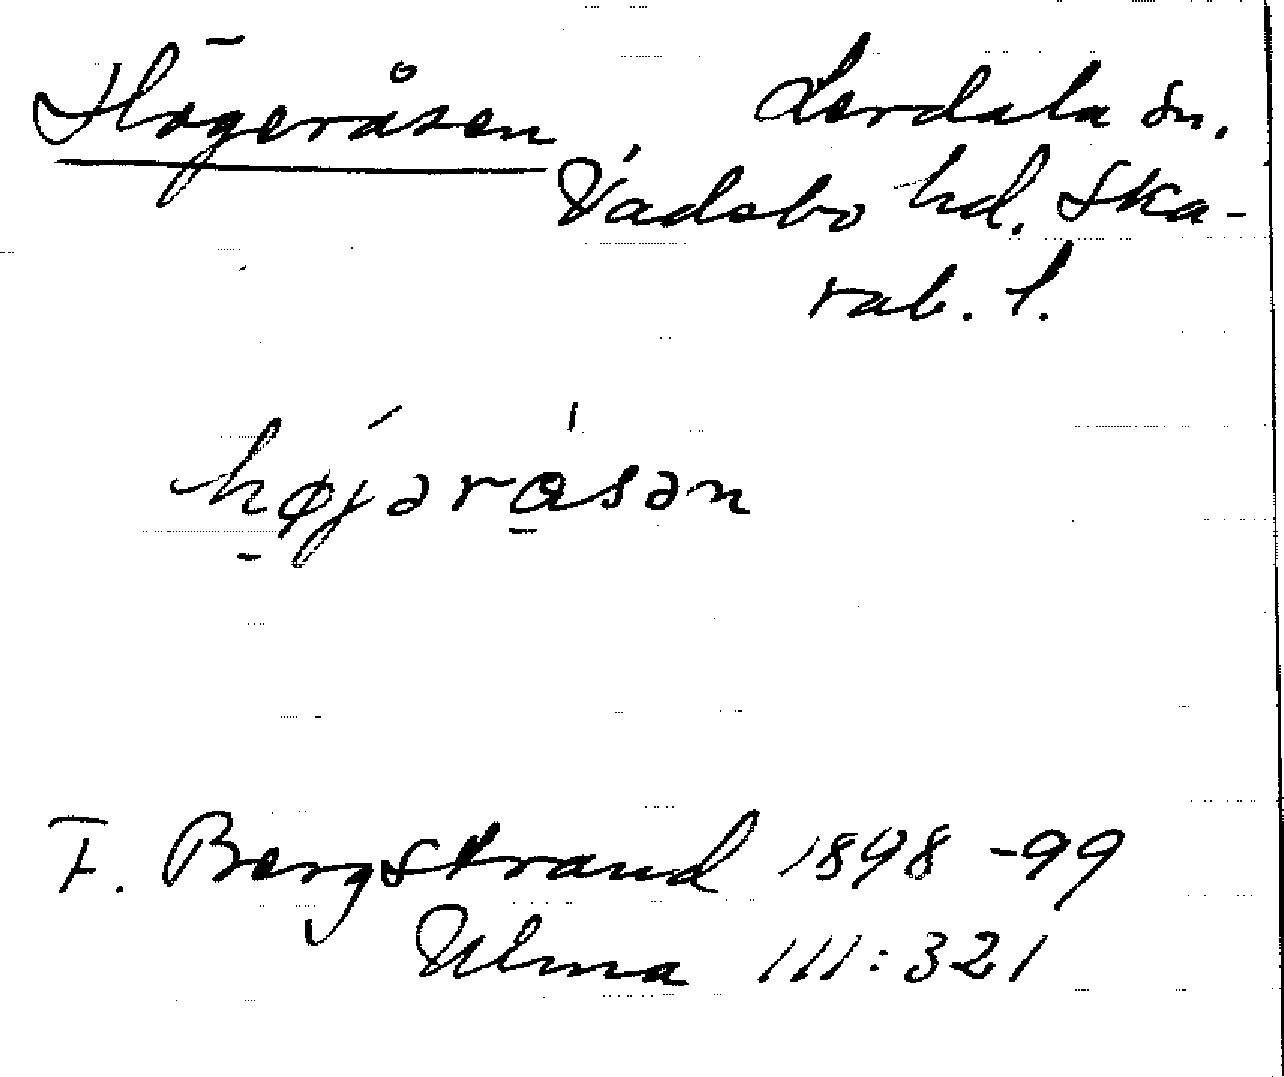 Högeråsen Lerdala sn.
Vadsbo hd. Ska-
rab. l.
højəråsən
F. Bergstrand 1898-99
Ulma 111:321